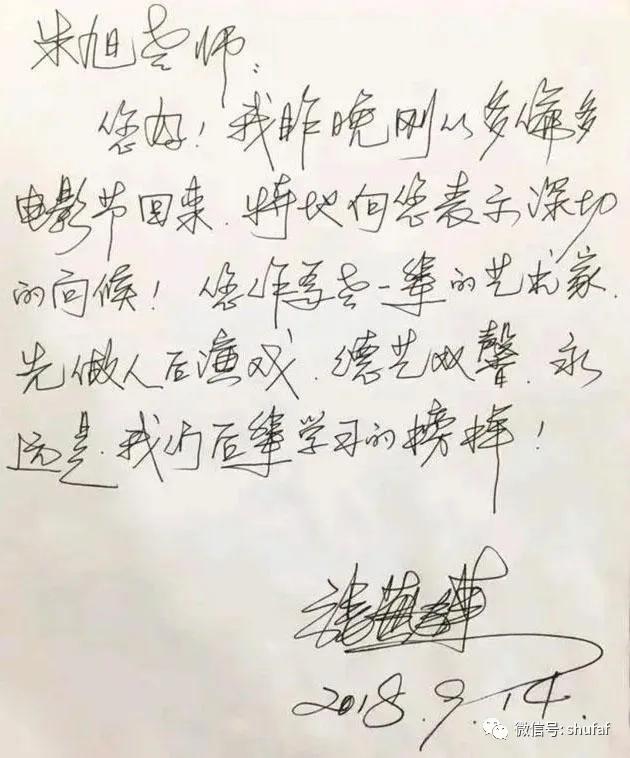 朱旭老师:
您好!我昨晚刚从多伦多
电影节回来.特地向您表示深切
的问候!您作为老一辈的艺术家.
先做人后演戏.德艺双馨.永
远是.我们后辈学习的榜样!
2018.9.14.
微信号: shufaf